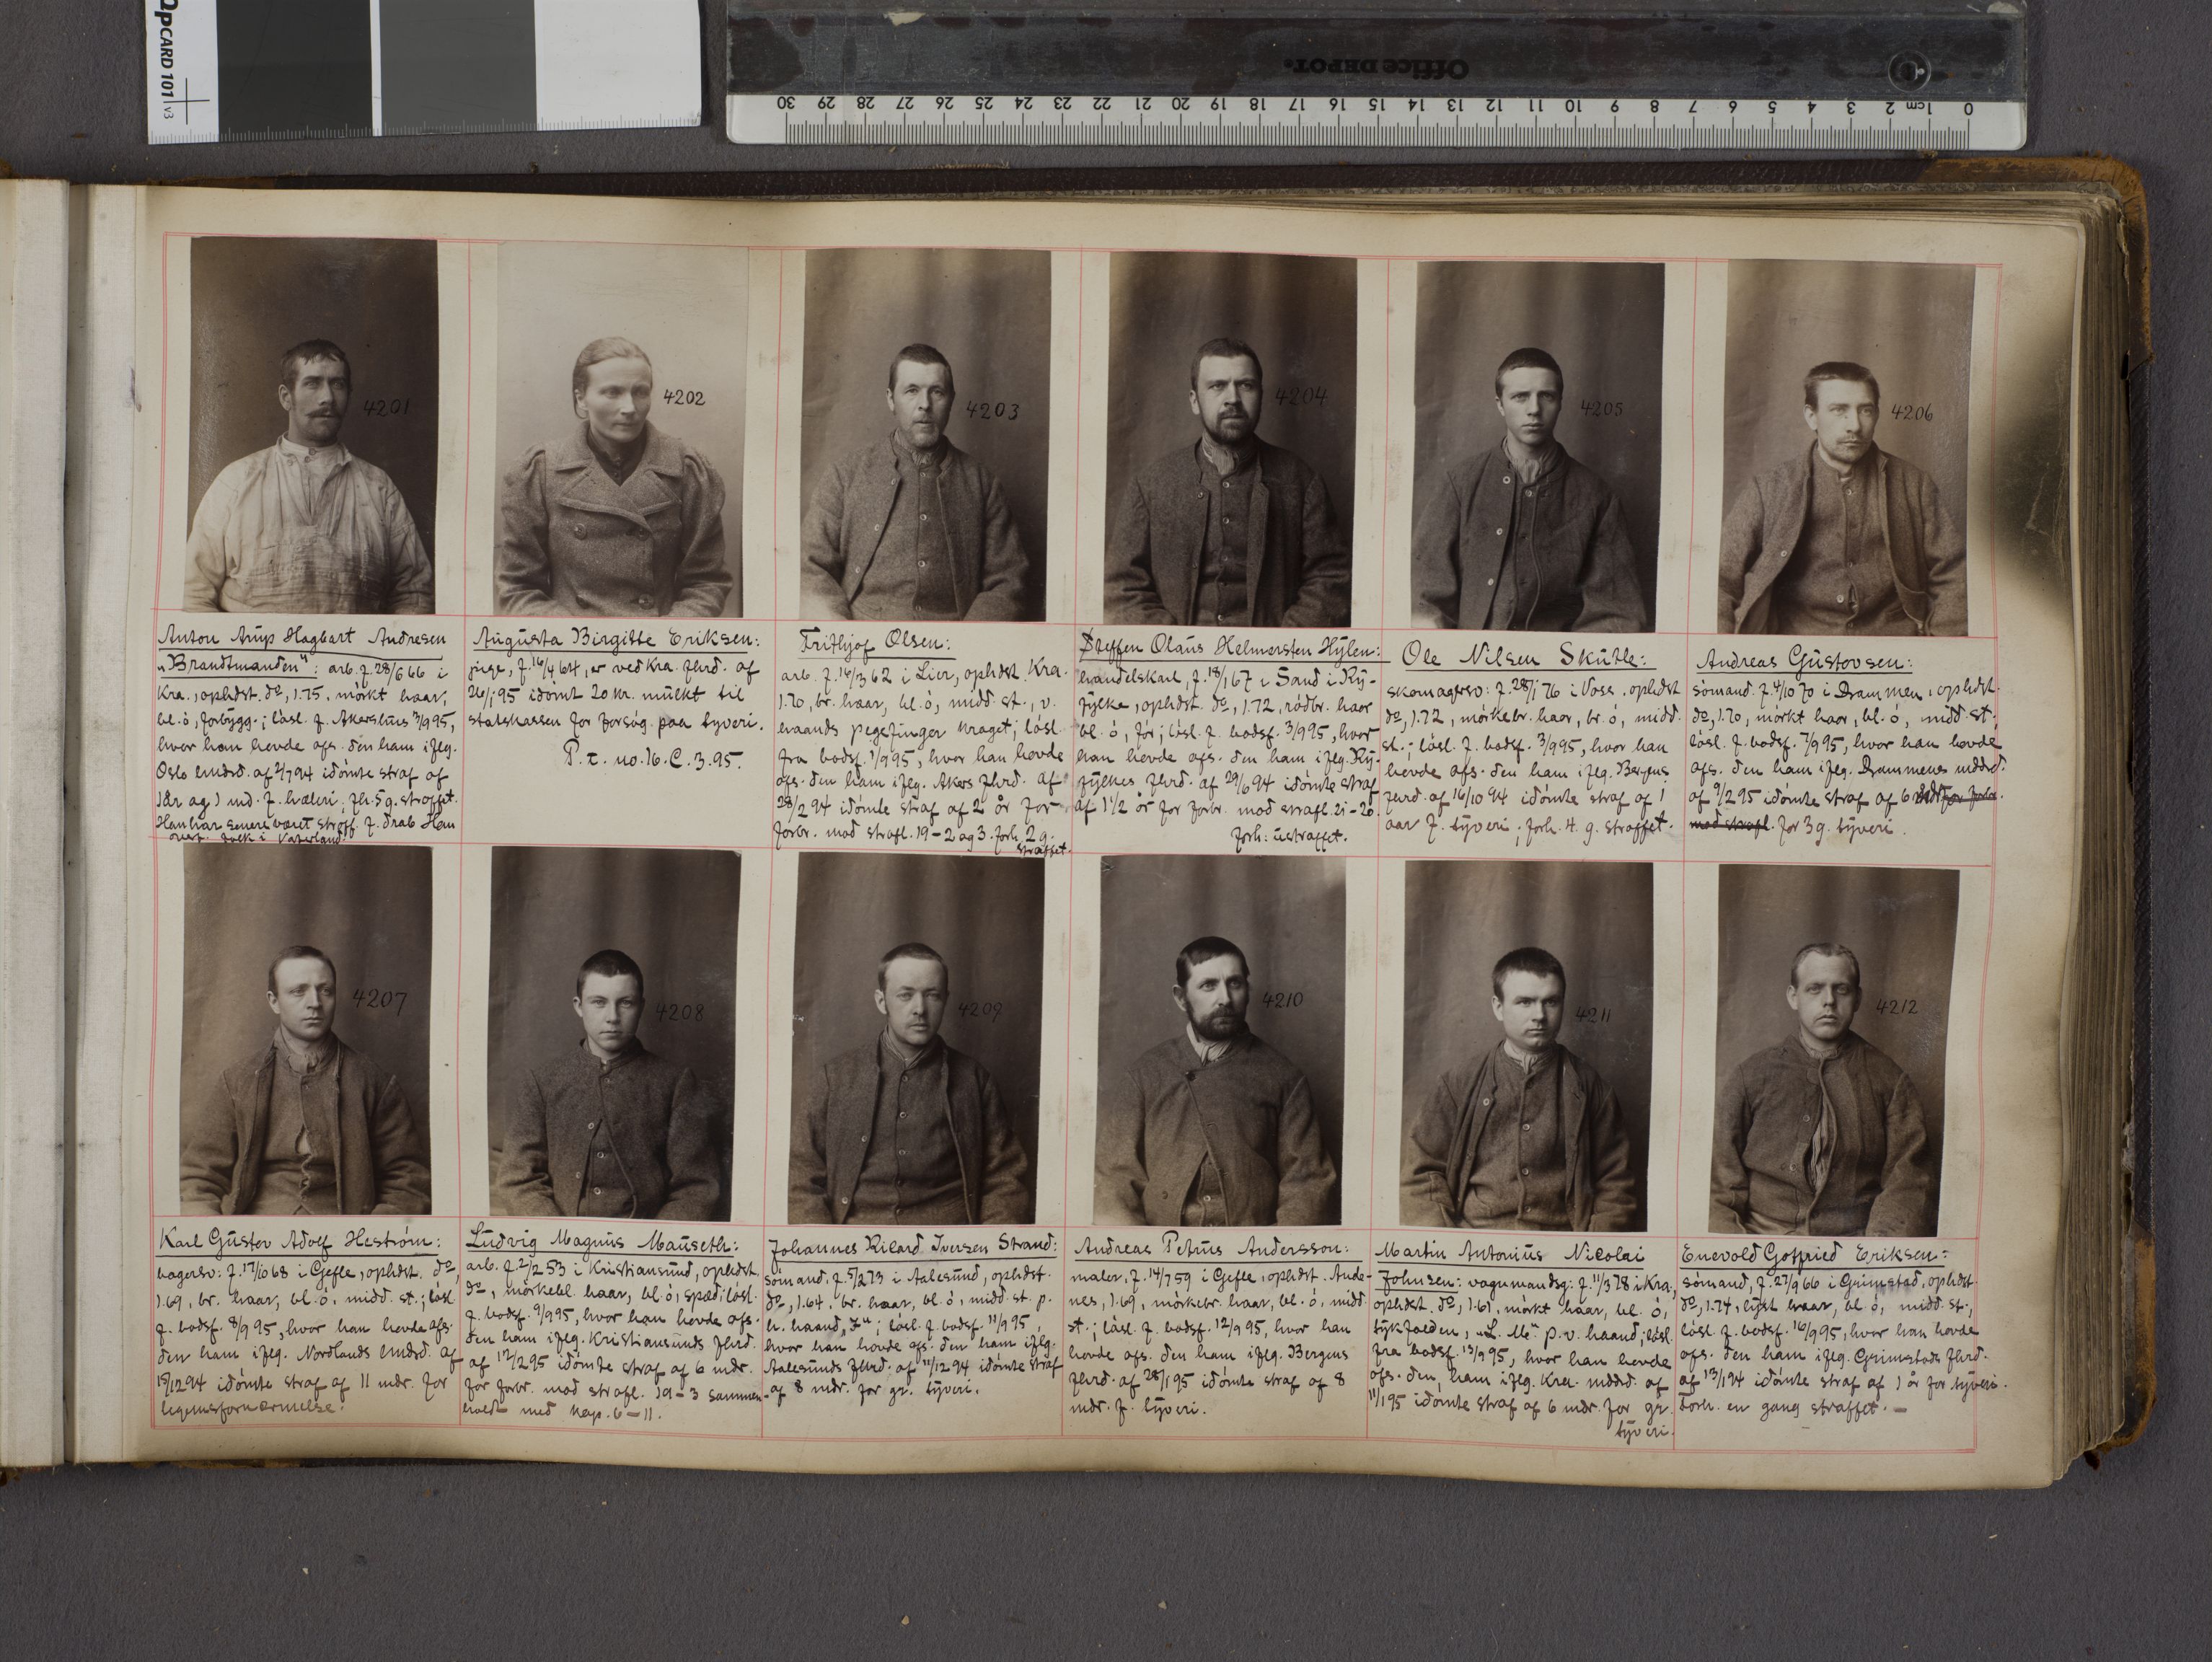 OpCARD 101 v3
Office DEPOT.
0 1 cm 2 3 4 5 6 7 8 9 10 11 12 13 14 15 16 17 18 19 20 21 22 23 24 25 26 27 28 29 30
4201
4202
4203
4204
4205
4206
Anton Arup Hagbart Andresen
"Brandtmanden": arb. f. 28/6 66 i
Kra., ophdst. do, 1.75, mörkt haar,
bl. ö, forbygg.; lösl. f. Akershus 3/9 95,
hvor han hevde afs. den ham iflg.
Oslo lmdrd. af 2/7 94 idömte straf af
1 år og 1 md. f. hæleri; fh. 5 g. straffet.
Han har senere været straff. f. drab Han
overf. folk i Vaterland.
Augusta Birgitte Eriksen:
pige, f. 16/4 64, er ved Kra. fhrd. af
26/1 95 idömt 20 kr. mulkt til
statskassen for forsög paa tyveri.
P. t. no. 16. C. 3. 95.
Frithjof Olsen:
arb. f. 16/3 62 i Lier, ophdst. Kra.
1.70, br. haar, bl. ö, midd. st., v.
haands pegefinger kraget; lösl.
fra bodsf. 1/9 95, hvor han hevde
afs. den ham iflg. Akers fhrd. af
28/2 94 idömte straf af 2 år for
forbr. mod strafl. 19-2 og 3. forh. 2 g.
straffet.
Steffen Olaus Helmersten Hylen:
handelskarl, f. 18/1 67 i Sand i Ry-
fylke, ophdst. do, 1.72, rödbr. haar
bl. ö, för; lösl. f. bodsf. 3/9 95, hvor
han hevde afs. den ham iflg. Ry-
fylkes fhrd. af 29/6 94 idömte straf
af 1 1/2 år for forbr. mod strafl. 21-20
forh: ustraffet.
Ole Nilsen Skutle:
skomagersv: f. 28/1 76 i Voss, ophdst
do, 1.72, mörkebr. haar, br. ö, midd.
st.; lösl. f. bodsf. 3/9 95, hvor han
hevde afs. den ham iflg. Bergens
fhrd. af 16/10 94 idömte straf af 1
aar f. tyveri; forh. 4. g. straffet.
Andreas Gustavsen:
sömand. f. 4/10 70 i Drammen, ophdst.
do, 1.70, mörkt haar, bl. ö, midd. st.
lösl. f. bodsf. 7/9 95, hvor han hevde
afs. den ham iflg. Drammens mddrd.
af 9/2 95 idömte straf af 6 mdr for forbr.
mod strafl. for 3 g. tyveri.
4207
4208
4209
4210
4211
4212
Karl Gustav Adolf Heström:
bagersv: f. 17/10 68 i Gefle, ophdst. do,
1.69, br. haar, bl. ö, midd. st.; lösl.
f. bodsf. 8/9 95, hvor han hevde afs.
den ham iflg. Nordlands lmdrd. af
15/12 94 idömte straf af 11 mdr. for
legemsfornærmelse.
Ludvig Magnus Mauseth:
arb. f. 2/2 53 i Kristiansund, ophdst.
do, mörkebl. haar, bl. ö, spæd; lösl.
f. bodsf. 9/9 95, hvor han hevde afs.
den ham iflg. Kristiansunds fhrd.
af 12/2 95 idömte straf af 6 mdr.
for forbr. mod strafl. 19-3 sammen-
holdt med kap. 6-11.
Johannes Rikard Iversen Strand:
sömand, f. 5/2 73 i Aalesund, ophdst.
do, 1.64, br. haar, bl. ö, midd. st. p.
h. haand, "I"; lösl. f. bodsf. 11/9 95,
hvor han hevde afs. den ham iflg.
Aalesunds fhrd. af 11/12 94 idömte straf
af 8 mdr. for gr. tyveri.
Andreas Petrus Andersson:
maler, f. 14/7 59 i Gefle, ophdst. Ande-
nes, 1.69, mörkebr. haar, bl. ö, midd.
st.; lösl. f. bodsf. 12/9 95, hvor han
hevde afs. den ham iflg. Bergens
fhrd. af 28/1 95 idömte straf af 8
mdr. f. tyveri.
Martin Antonius Nicolai
Johnsen: vognmandsg: f. 11/3 78 i Kra.,
ophdst. do, 1.61, mörkt haar, bl. ö,
tykfalden, "L. M." p. v. haand; lösl.
fra bodsf. 13/9 95, hvor han hevde
afs. den ham iflg. Kra. mddrd. af
11/1 95 idömte straf af 6 mdr. for gr.
tyveri.
Enevold Gotfried Eriksen:
sömand, f. 27/9 66 i Grimstad, ophdst.
do, 1.74, lyst haar, bl. ö, midd. st.,
lösl. f. bodsf. 16/9 95, hvor han hevde
afs. den ham iflg. Grimstads fhrd.
af 13/1 94 idömte straf af 1 år for tyveri.
Forh. en gang straffet. —